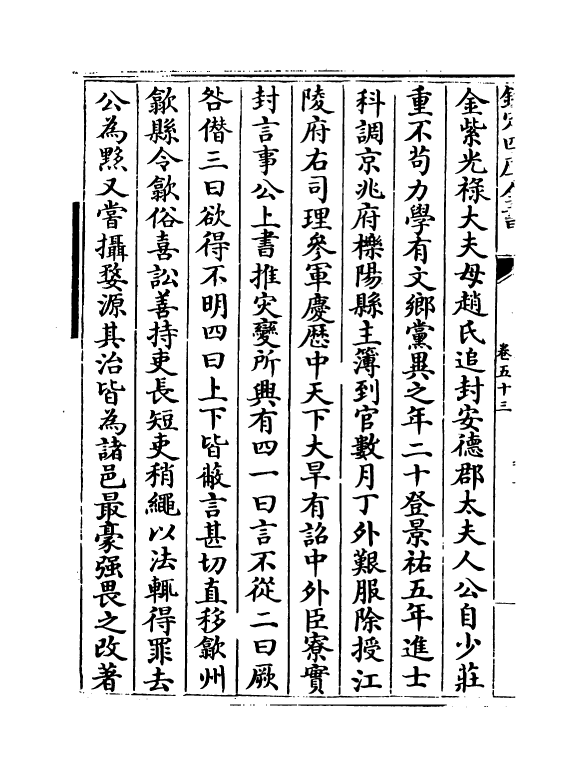 欽定四庫全書
卷五十三
金紫光祿大夫母趙氏追封安德郡太夫人公自少莊
重不苟力學有文鄉黨異之年二十登景祐五年進士
科調京兆府櫟陽縣主簿到官數月丁外艱服除授江
陵府右司理參軍慶歷中天下大旱有詔中外臣寮實
封言事公上書推灾變所興有四一曰言不從二曰厥
咎僭三曰欲得不明四曰上下皆蔽言甚切直移歙州
歙縣令歙俗喜訟善持吏長短吏稍繩以法輒得罪去
公為黟又嘗攝婺源其治皆為諸邑最豪强畏之改著